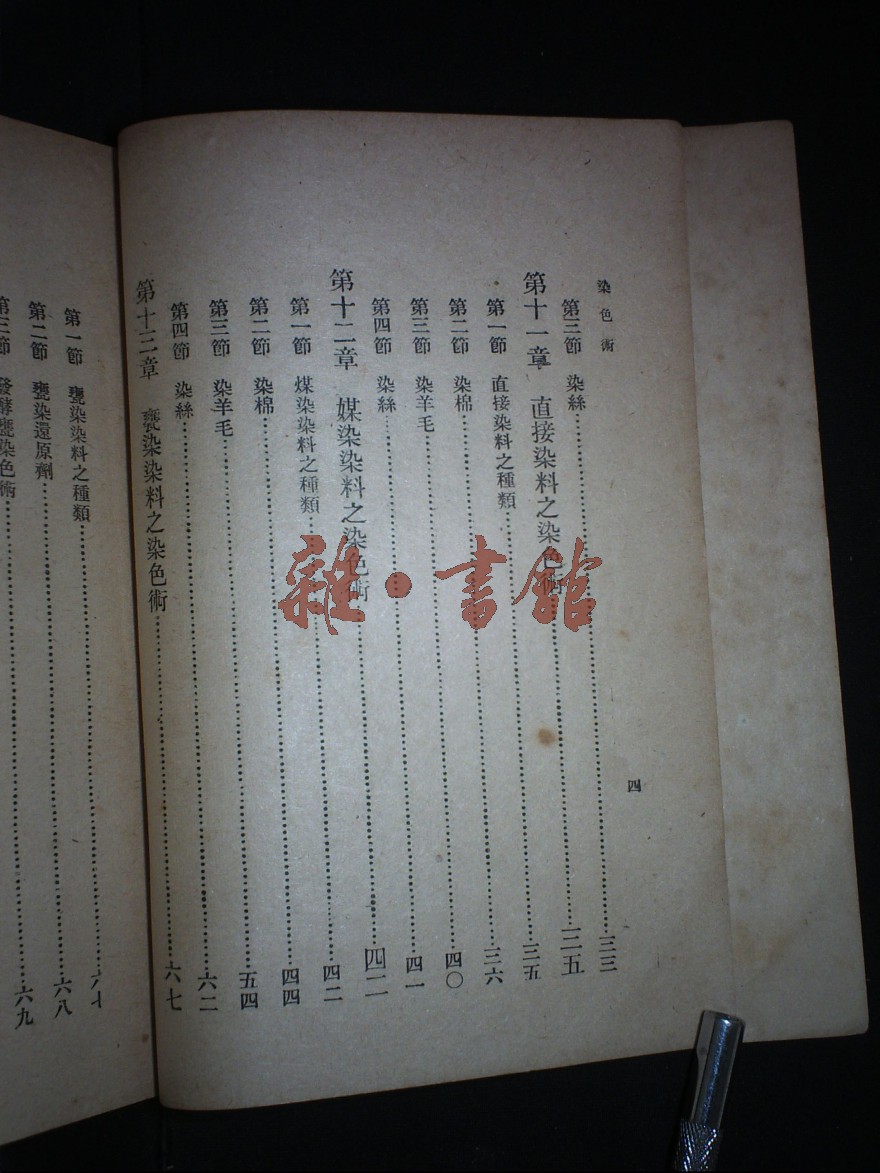 染色術
四
第三節 染絲……三三
第十一章 直接染料之染色術……三五
第一節 直接染料之種類……三五
第二節 染棉……三六
第三節 染羊毛……四〇
第四節 染絲……四一
第十二章 媒染染料之染色術……四二
第一節 煤染染料之種類……四二
第二節 染棉……四四
第三節 染羊毛……五四
第四節 染絲……六二
第十三章 甕染染料之染色術……六七
第一節 甕染染料之種類……六七
第二節 甕染還原劑……六八
第三節 發酵甕染色術……六九
雜·書館